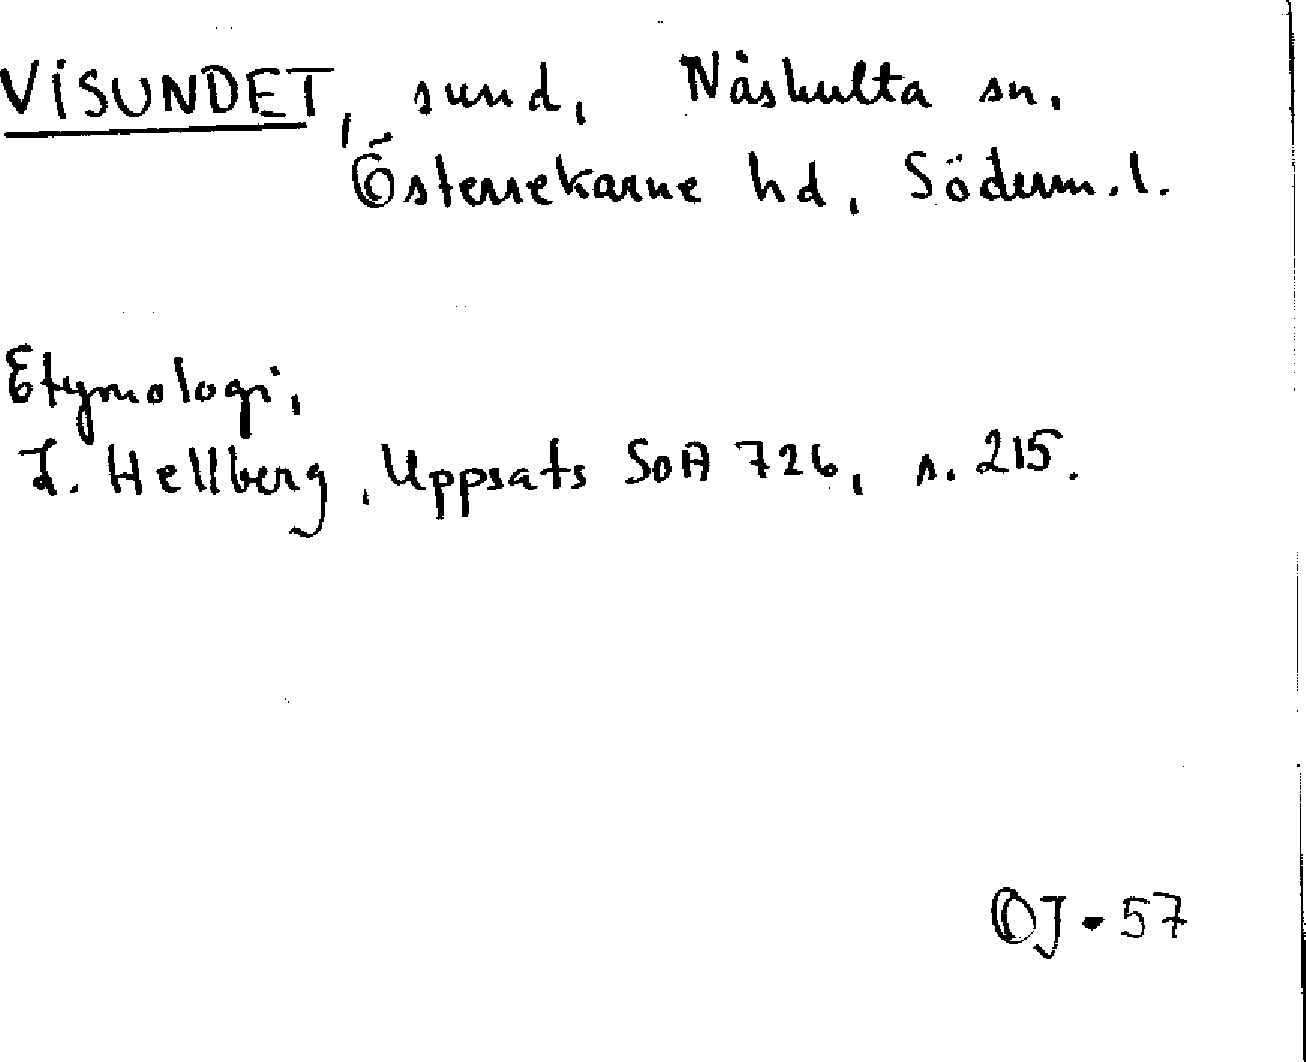 VISUNDET, sund, Näshulta sn.
Österrekarne hd, Söderm. l.
Etymologi,
L. Hellberg, Uppsats SOA 726, s. 215.
OJ - 57